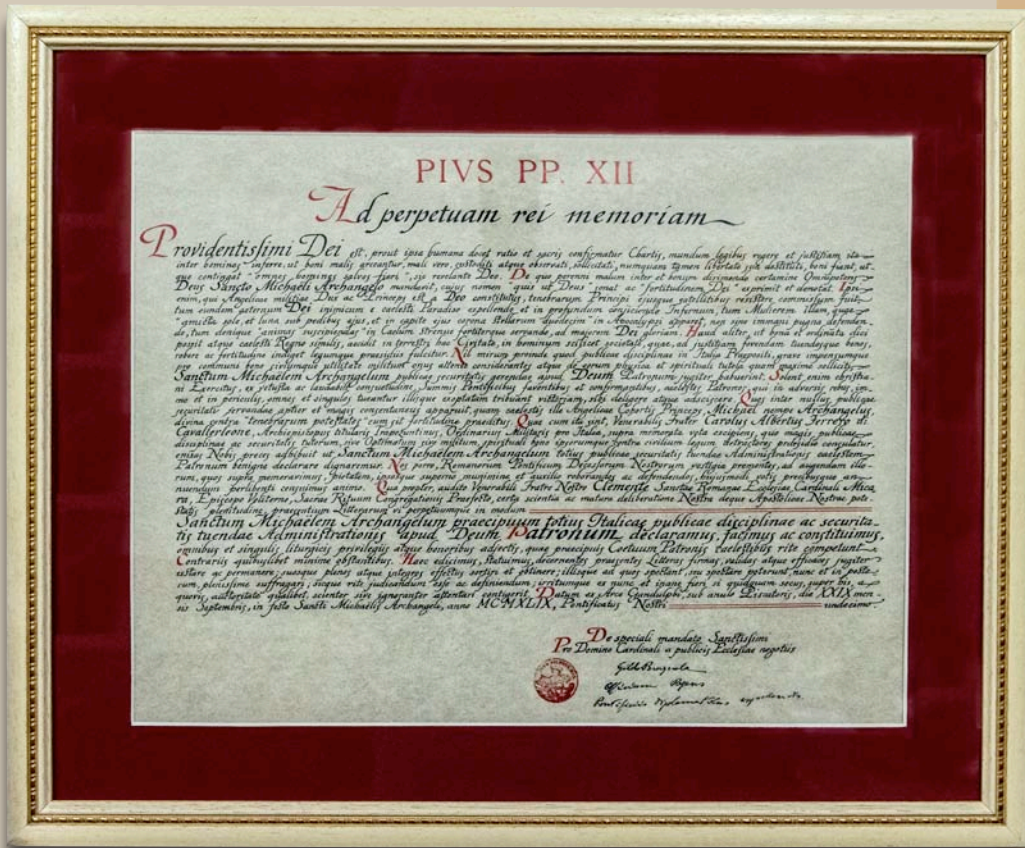 PIVS PP. XII
Ad perpetuam rei memoriam
Providentissimi Dei est, prout ipsa humana docet ratio et sacris confirmatur Chartis, mundum legibus regere et justitiam ita
inter homines inferre, ut boni malis arceantur, mali vero, custodiis atque observati, solliciti, numquam tamen libertate sua destituti, boni fiant, ut
que contingat "omnes homines salvos fieri", sic revelante Deo. De que perenni malum inter et bonum dirimendo certamine Omnipotens
Deus Sancto Michaeli Archangelo mandavit, cujus nomen "quis ut Deus" sonat ac "fortitudinem Dei" exprimit et denotat. Ipsi
enim, qui Angelicae militiae Dux ac Princeps est a Deo constitutus, tenebrarum Principi ejusque satellitibus resistere commissum fuit,
tum eundem aeternum Dei inimicum e caelesti Paradiso expellendo et in profundum conjiciendo Infernum, tum Mulierem illam, quae
"amicta sole, et luna sub pedibus ejus, et in capite ejus corona stellarum duodecim" in Apocalypsi apparet, nec sine immagni pugna, defenden-
do, tum denique "animas suscipiendas" in Caelum strenue fortiterque servando, ad majorem Dei gloriam. Haud aliter, ut bona et ordinata dici
possit atque caelesti Regno similis, accidit in terrestri hac Civitate, in hominum scilicet societate, quae, ad justitiam ferendam tuendosque bonos,
robore ac fortitudine indiget legumque praesidiis fulcitur. Nil mirum proinde quod publicae disciplinae in Italia Praepositi, grave impensumque
pro communi bono civiumque utilitate militum onus attente considerantes atque de eorum physica et spirituali tutela quam maxime solliciti,
Sanctum Michaelem Archangelum publicae securitatis gerendae apud Deum Patronum jugiter habuerint. Solent enim christia-
ni Exercitus, ex vetusta ac laudabili consuetudine, Summis Pontificibus faventibus et confirmantibus, caelestes Patronos, qui in adversis rebus, im-
mo et in periculis, omnes et singulos tueantur illisque exoptatam tribuant victoriam, sibi deligere atque adsciscere. Quos inter nullus publicae
securitati servandae aptior et magis consentaneus apparuit, quam caelestis ille Angelicae Cohortis Princeps, Michael nempe Archangelus,
divina contra tenebrarum potestates cum sit fortitudine praeditus. Quae cum ita sint, Venerabilis Frater Carolus Albertus Ferrero di
Cavallerleone, Archiepiscopus titularis Trapezuntinus, Ordinarius Militaris pro Italia, supra memorata vota excipiens, quo magis publicae
disciplinae ac securitatis tutorum, sive Optimatum sive militum, spirituali bono ipsorumque contra civilium legum detractores praesidio consulatur,
enixas Nobis preces adhibuit ut Sanctum Michaelem Archangelum totius publicae securitatis tuendae Administrationis caelestem
Patronum benigne declarare dignaremur. Nos porro, Romanorum Pontificum Decessorum Nostrorum vestigia prementes, ad augendam illo-
rum, quos supra memoravimus, pietatem, ipsosque superno munimine et auxilio roborandos ac defendendos, hujusmodi votis precibusque an-
nuendum perlibenti censuimus animo. Quapropter, audito Venerabili Fratre Nostro Clemente Sanctae Romanae Ecclesiae Cardinali Mica
ra, Episcopo Veliterno, Sacrae Rituum Congregationis Praefecto, certa scientia ac matura deliberatione Nostra deque Apostolicae Nostrae pote
statis plenitudine, praesentium Litterarum vi perpetuumque in modum
Sanctum Michaelem Archangelum praecipuum totius Italicae publicae disciplinae ac securita-
tis tuendae Administrationis apud Deum Patronum declaramus, facimus ac constituimus,
omnibus et singulis liturgicis privilegiis atque honoribus adjectis, quae praecipuis Coetuum Patronis caelestibus rite competunt.
Contrariis quibuslibet minime obstantibus. Haec edicimus, statuimus, decernentes praesentes Litteras firmas, validas atque efficaces jugiter
exstare ac permanere; suosque plenos atque integros effectus sortiri et obtinere; illisque ad quos spectant, seu spectare poterunt, nunc et in poste-
rum, plenissime suffragari; sicque rite judicandum esse ac definiendum; irritumque ex nunc et inane fieri si quidquam secus, super his, a
quovis, auctoritate qualibet, scienter sive ignoranter attentari contigerit. Datum ex Arce Gandulphi, sub anulo Piscatoris, die XXIX men-
sis Septembris, in festo Sancti Michaelis Archangeli, anno MCMXLIX, Pontificatus Nostri undecimo
De speciali mandato Sanctissimi
Pro Domino Cardinali a publicis Ecclesiae negotiis